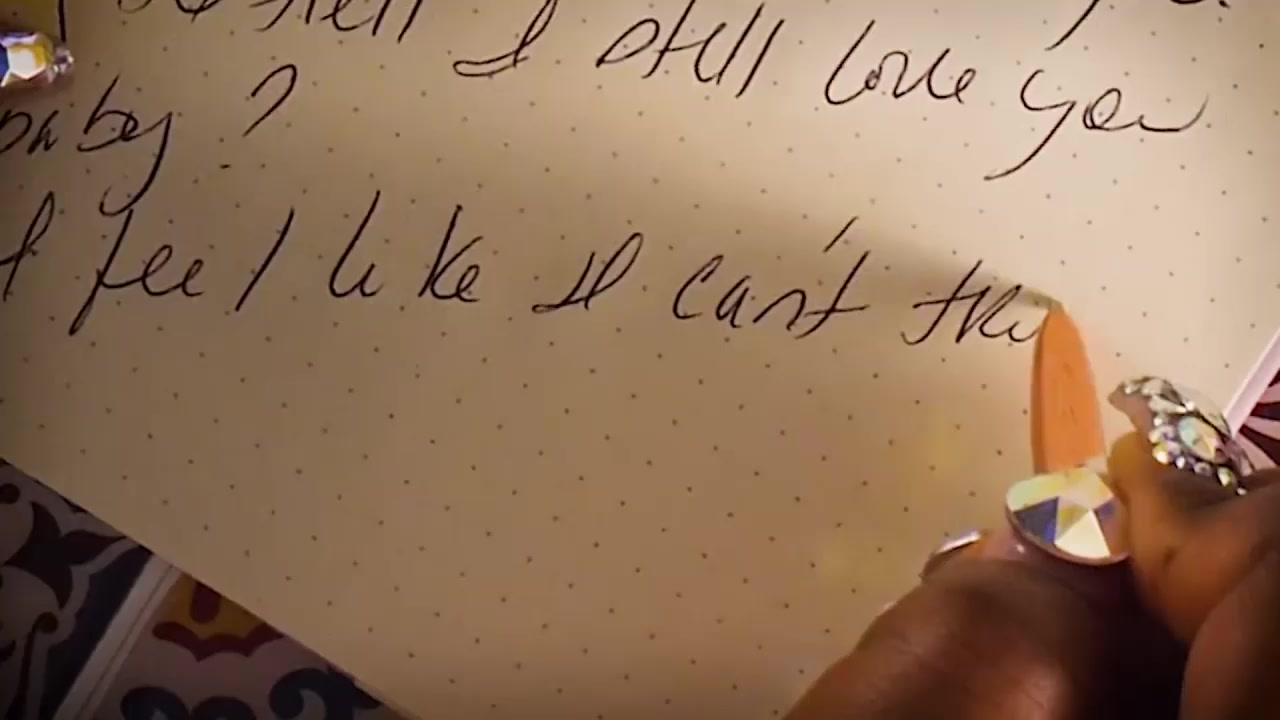 I still love you
baby?
I feel like I can't